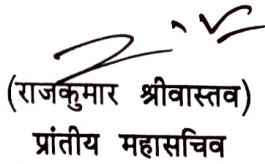 (राजकुमार श्रीवास्तव)
प्रांतीय महासचिव